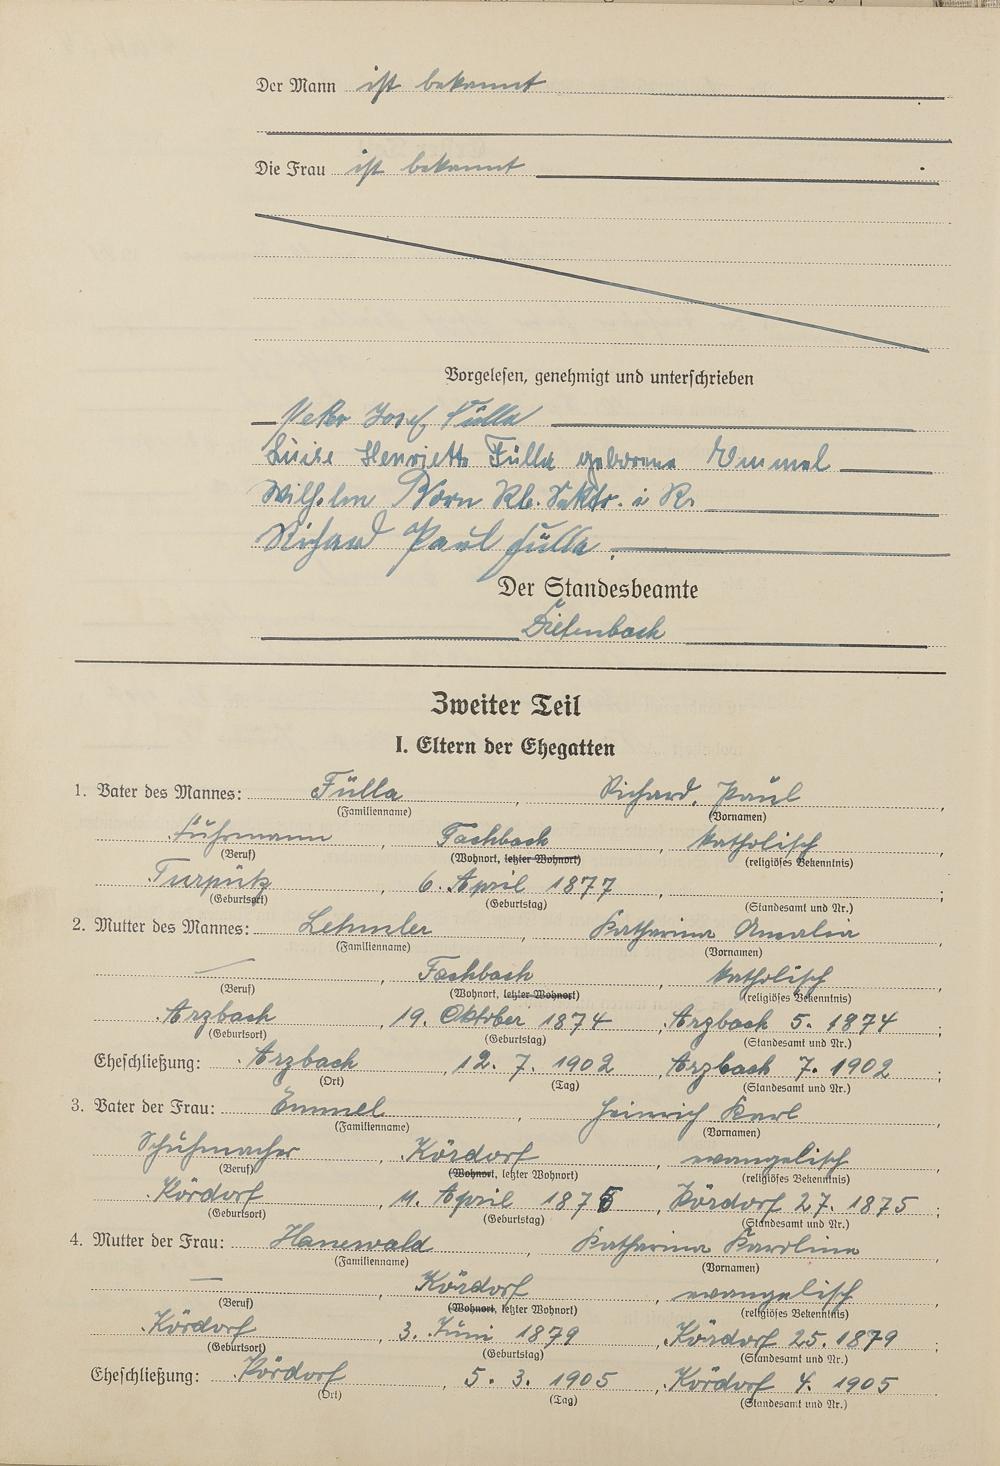 Der Mann ist bekannt
Die Frau ist bekannt
Vorgelesen, genehmigt und unterschrieben
Josef Fülla
Luise Henriette Fülla geborene Emmel
Wilhelm Born Rb. Sektr. i R.
Richard Paul Fülla
Der Standesbeamte
Diefenbach
Zweiter Teil
I. Eltern der Ehegatten
1. Vater des Mannes: Fülla, Richard, Paul,
(Familienname) (Vornamen)
Fuhrmann, Fachbach, katholisch,
(Beruf) (Wohnort, letzter Wohnort) (religiöses Bekenntnis)
6. April 1877, ;
(Geburtsort) (Geburtstag) (Standesamt und Nr.)
2. Mutter des Mannes: Lehmler, Katharina Amalia,
(Familienname) (Vornamen)
—, Fachbach, katholisch,
(Beruf) (Wohnort, letzter Wohnort) (religiöses Bekenntnis)
Arzbach, 19. Oktober 1874, Arzbach 5. 1874;
(Geburtsort) (Geburtstag) (Standesamt und Nr.)
Eheschließung: Arzbach, 12. 7. 1902, Arzbach 7. 1902;
(Ort) (Tag) (Standesamt und Nr.)
3. Vater der Frau: Emmel, Heinrich Karl,
(Familienname) (Vornamen)
Schuhmacher, Kördorf, evangelisch,
(Beruf) (Wohnort, letzter Wohnort) (religiöses Bekenntnis)
Kördorf, 11. April 1875, Kördorf 27. 1875;
(Geburtsort) (Geburtstag) (Standesamt und Nr.)
4. Mutter der Frau: Hanewald, Katharina Karoline,
(Familienname) (Vornamen)
—, Kördorf, evangelisch,
(Beruf) (Wohnort, letzter Wohnort) (religiöses Bekenntnis)
Kördorf, 3. Juni 1879, Kördorf 25. 1879;
(Geburtsort) (Geburtstag) (Standesamt und Nr.)
Eheschließung: Kördorf, 5. 3. 1905, Kördorf 4. 1905.
(Ort) (Tag) (Standesamt und Nr.)